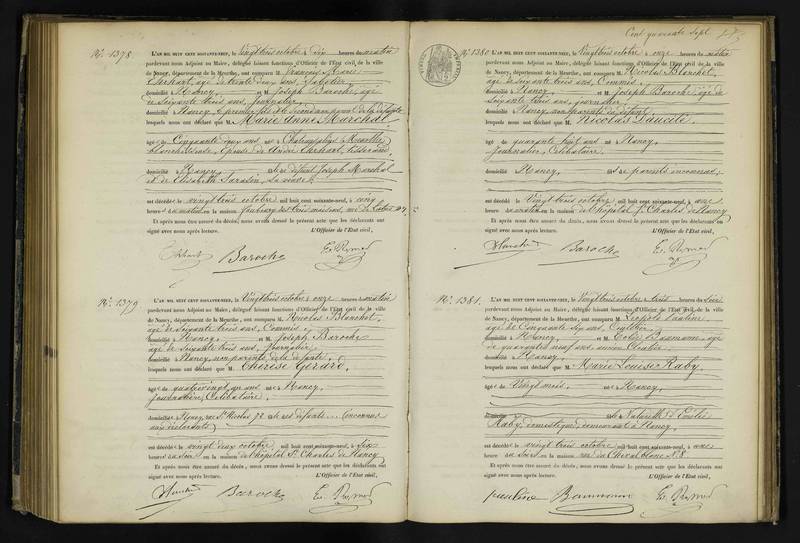 N°. 1378. L'AN MIL HUIT CENT SOIXANTE-NEUF, le Vingt trois octobre à dix heures du matin
pardevant nous Adjoint au Maire, délégué faisant fonctions d'Officier de l'Etat civil de la ville
de Nancy, département de la Meurthe, ont comparu M. François Marie
Ehrhart, âgé de trente deux ans,
domicilié à Nancy, et M. Joseph Baroche, âgé
de Soixante trois ans, journalier,
domicilié à Nancy, le premier fils & le second non parent de la défunte
lesquels nous ont déclaré que M. Marie Anne Marchal
âgé de Cinquante ans né à
Épouse de André Ehrhart,
domicilié à Nancy, fille de défunt Joseph Marchal
et de Elisabeth sa veuve
est décédé le vingt trois octobre mil huit cent soixante-neuf, à cinq
heures du matin en la maison faubourg des trois maisons,
Et après nous être assuré du décès, nous avons dressé le présent acte que les déclarants ont
signé avec nous après lecture. L'Officier de l'Etat civil,
Ehrhart Baroche
N°. 1379 L'AN MIL HUIT CENT SOIXANTE-NEUF, le Vingt trois octobre à onze heures du matin
pardevant nous Adjoint au Maire, délégué faisant fonctions d'Officier de l'Etat civil de la ville
de Nancy, département de la Meurthe, ont comparu M. Nicolas Blanchet,
âgé de Soixante trois ans, Commis,
domicilié à Nancy, et M. Joseph Baroche
âgé de Soixante trois ans, journalier,
domicilié à Nancy, non parents de la défunte,
lesquels nous ont déclaré que M. Thérèse Gérard
âgé de quatrevingt un ans né à Nancy,
journalière, Célibataire,
domicilié à Nancy, rue St Nicolas 72 fille de défunts (inconnus
aux déclarants)
est décédé le vingt deux octobre mil huit cent soixante-neuf, à six
heures du soir en la maison de l'hôpital St Charles de Nancy
Et après nous être assuré du décès, nous avons dressé le présent acte que les déclarants ont
signé avec nous après lecture. L'Officier de l'Etat civil,
Blanchet Baroche
Cent quarante sept
N°. 1380 L'AN MIL HUIT CENT SOIXANTE-NEUF, le Vingt trois octobre à onze heures du matin
pardevant nous Adjoint au Maire, délégué faisant fonctions d'Officier de l'Etat civil de la ville
de Nancy, département de la Meurthe, ont comparu M. Nicolas Blanchet,
âgé de Soixante trois ans, Commis,
domicilié à Nancy, et M. Joseph Baroche âgé de
Soixante trois ans, journalier,
domicilié à Nancy, non parents du défunt,
lesquels nous ont déclaré que M. Nicolas
âgé de quarante huit ans né à Nancy,
journalier, Célibataire,
domicilié à Nancy, fils de parents inconnus,
est décédé le Vingt trois octobre mil huit cent soixante-neuf, à onze
heures du matin en la maison de l'hôpital St Charles de Nancy
Et après nous être assuré du décès, nous avons dressé le présent acte que les déclarants ont
signé avec nous après lecture. L'Officier de l'Etat civil,
Blanchet Baroche
N°. 1381. L'AN MIL HUIT CENT SOIXANTE-NEUF, le Vingt trois octobre à trois heures du soir
pardevant nous Adjoint au Maire, délégué faisant fonctions d'Officier de l'Etat civil de la ville
de Nancy, département de la Meurthe, ont comparu M. Léopold
âgé de Cinquante six ans,
domicilié à Nancy, et M. Baumann, âgé
de quarante neuf ans,
domicilié à Nancy
lesquels nous ont déclaré que M. Marie Louise Raby,
âgé de Vingt mois, né à Nancy,
fille Naturelle d'Emilie
Raby, domestique demeurant à Nancy,
est décédé le vingt trois octobre mil huit cent soixante-neuf, à une
heure du soir en la maison rue du Cheval blanc N°. 8
Et après nous être assuré du décès, nous avons dressé le présent acte que les déclarants ont
signé avec nous après lecture. L'Officier de l'Etat civil,
Baumann